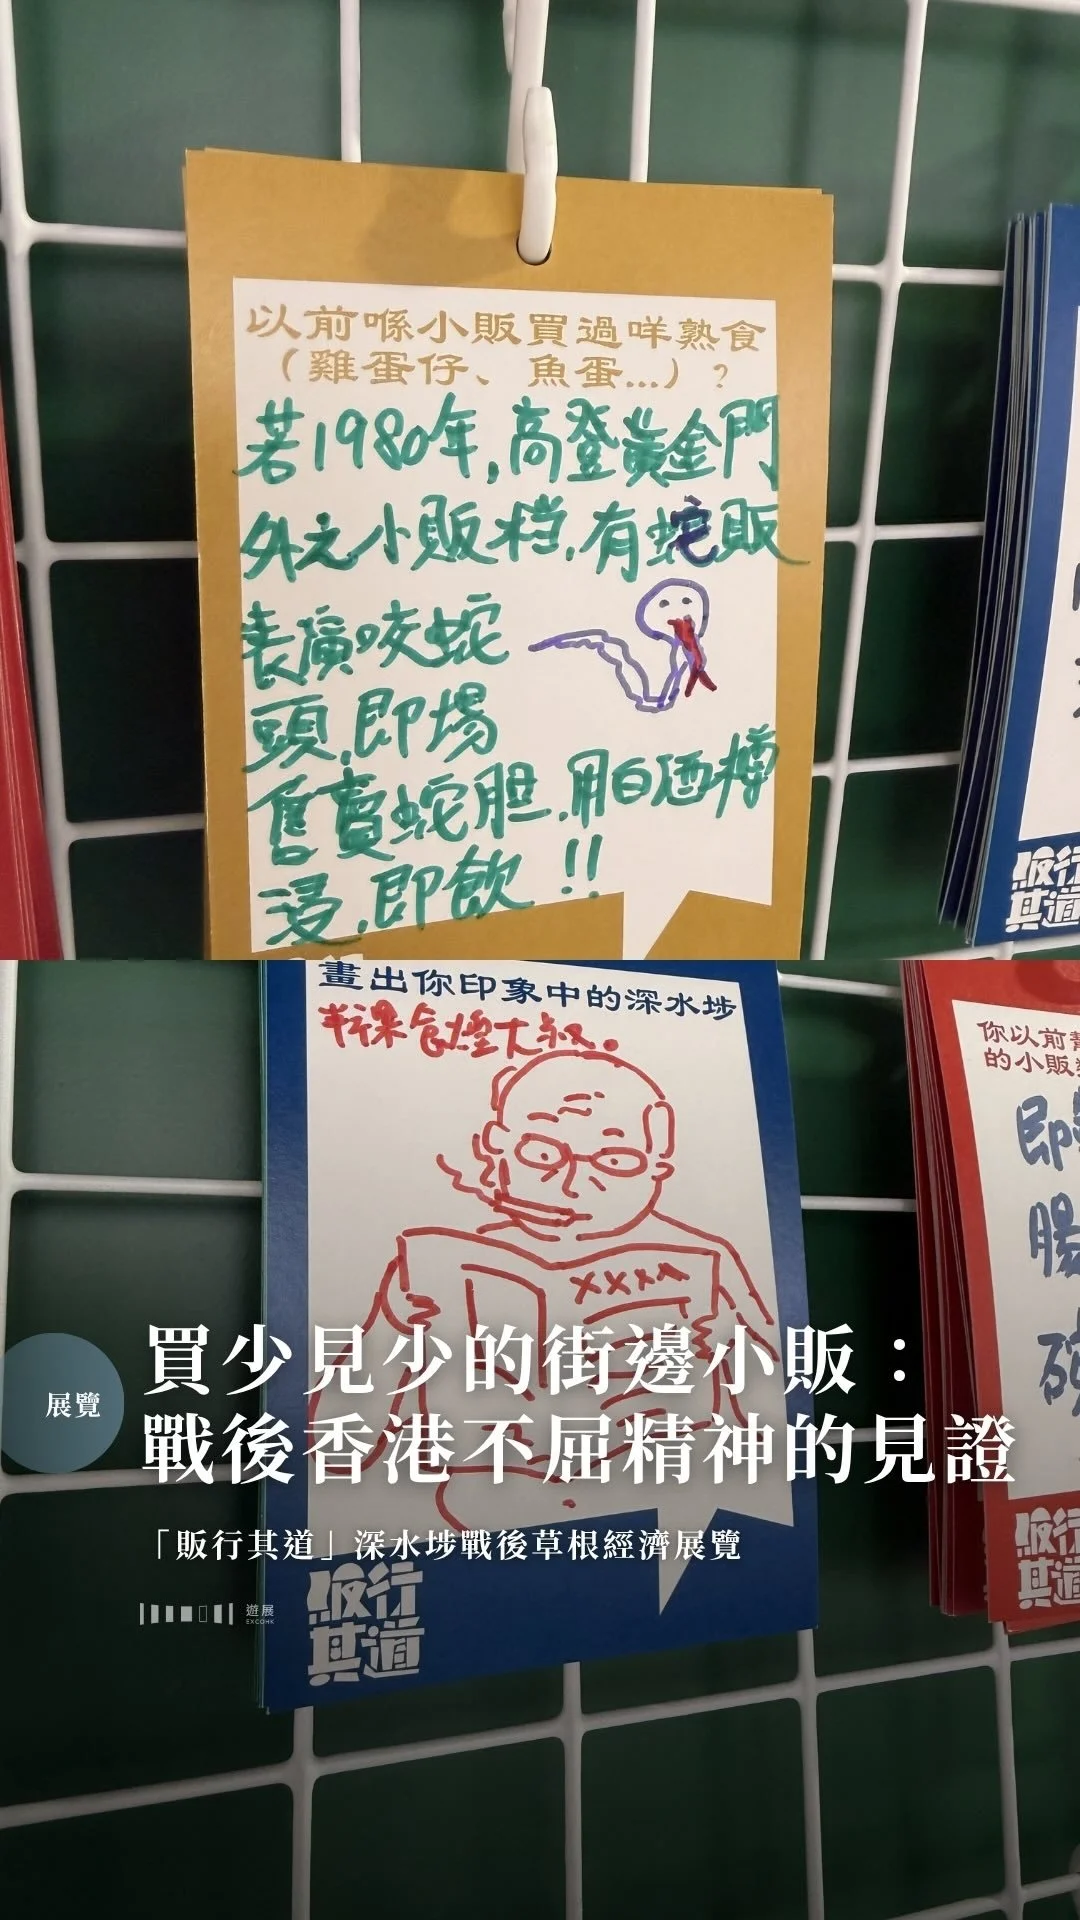 以前喺小販買過咩熟食
（雞蛋仔、魚蛋...）？
若1980年,高登黃金門
外之小販档,有蛇販
表演咬蛇
頭,即場
售賣蛇胆,用白酒樽
浸,即飲!!
販行
其道
畫出你印象中的深水埗
半裸食煙大叔。
XXXX
你以前
的小販
即
腸
展覽
買少見少的街邊小販：
戰後香港不屈精神的見證
「販行其道」深水埗戰後草根經濟展覽
遊展
EXCOHK
販行
其道
販行
其道